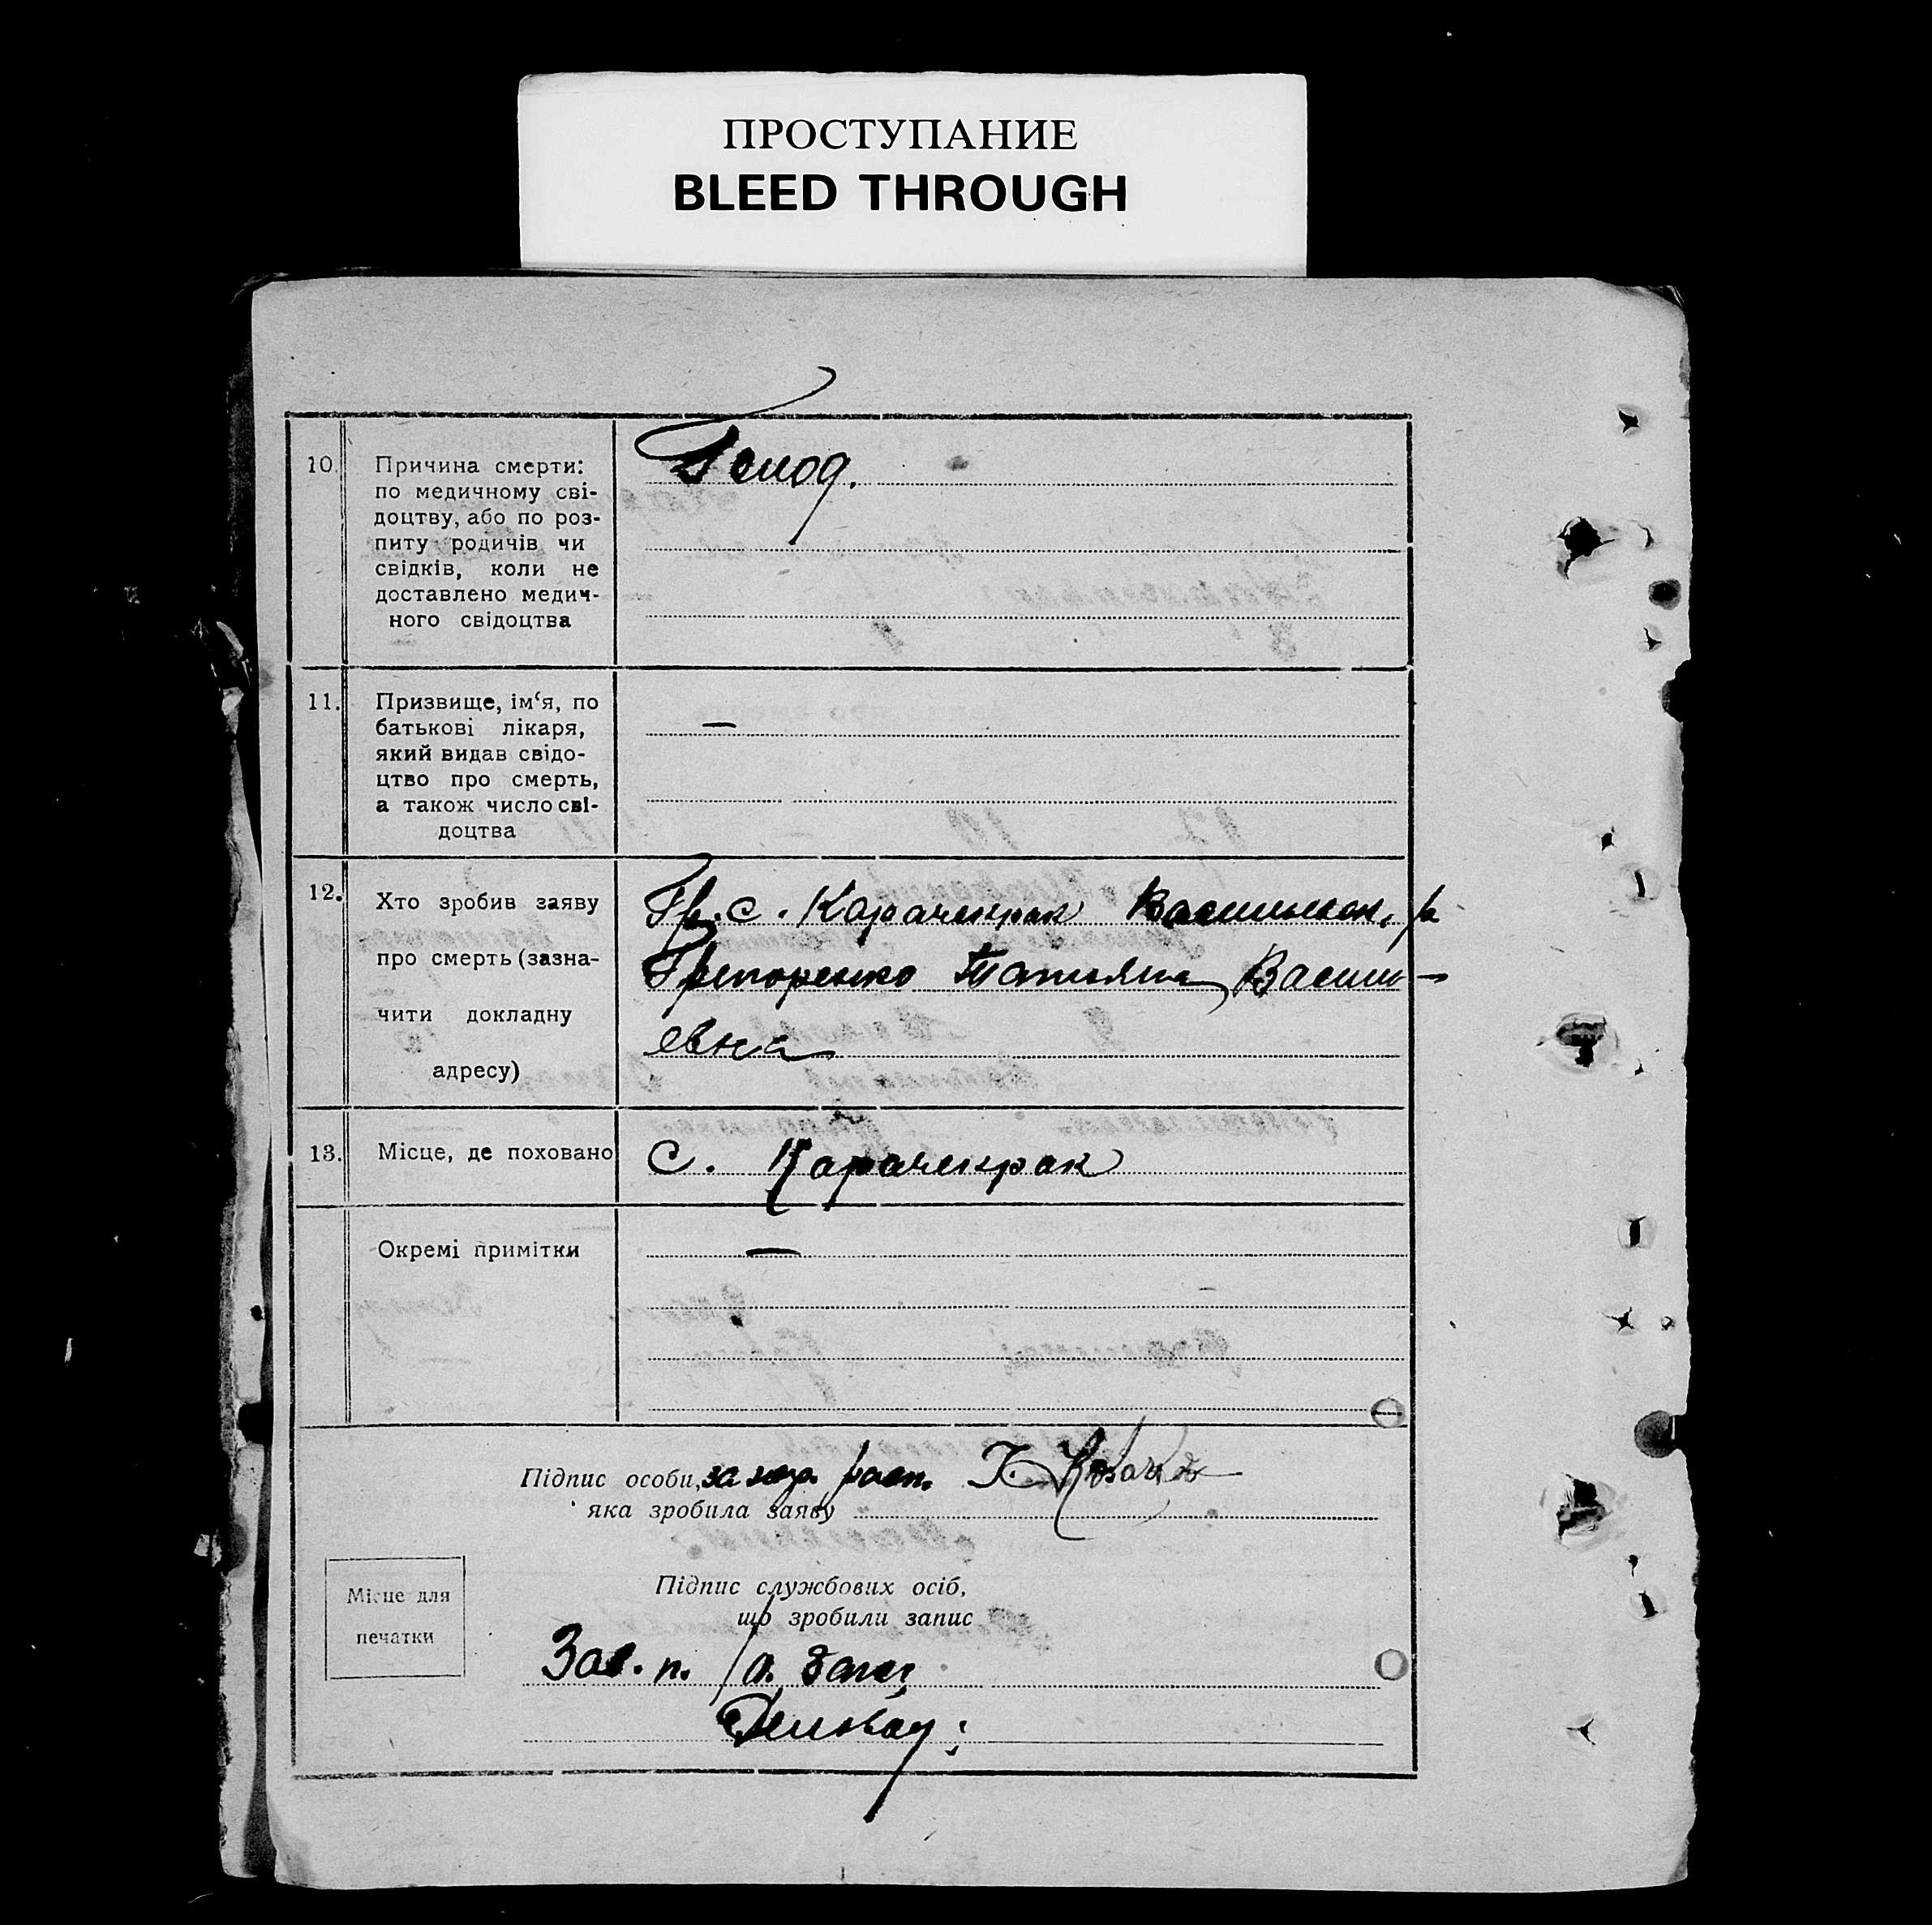 ПРОСТУПАНИЕ
BLEED THROUGH
10. Причина смерти:
по медичному сві-
доцтву, або по роз-
питу родичів чи
свідків, коли не
доставлено медич-
ного свідоцтва
Голод.
11. Призвище, ім‘я, по
батькові лікаря,
який видав свідо-
цтво про смерть,
а також число сві-
доцтва
—
12. Хто зробив заяву
про смерть (зазна-
чити докладну
адресу)
Гр. с. Карачекрак Васильк. р
Григоренко Татьяна Василь-
евна
13. Місце, де поховано
с. Карачекрак
Окремі примітки
—
Підпис особи, за негр. расп.
яка зробила заяву
Місце для
печатки
Підпис службових осіб,
що зробили запис
Зав. п.